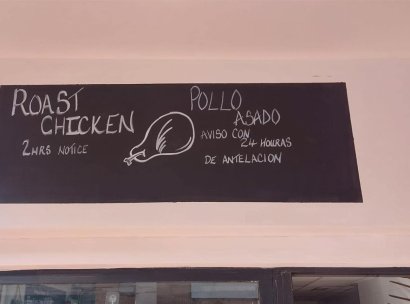 ROAST
CHICKEN
2HRS NOTICE
POLLO
ASADO
AVISO CON
24 HOURAS
DE ANTELACION